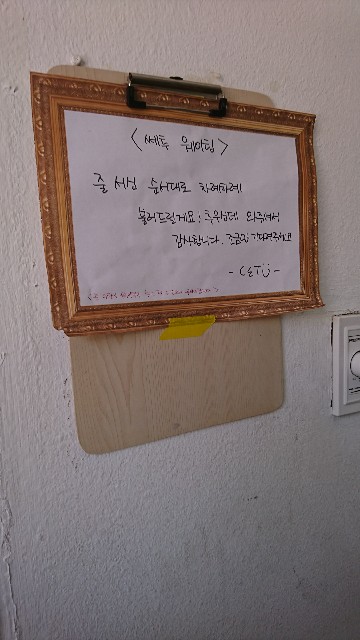 <쎄투 웨이팅>
줄 서신 순서대로 차례차례
불러드릴게요! 추위에 와주셔서
감사합니다. 조금만 기다려주세요!
- CETU -